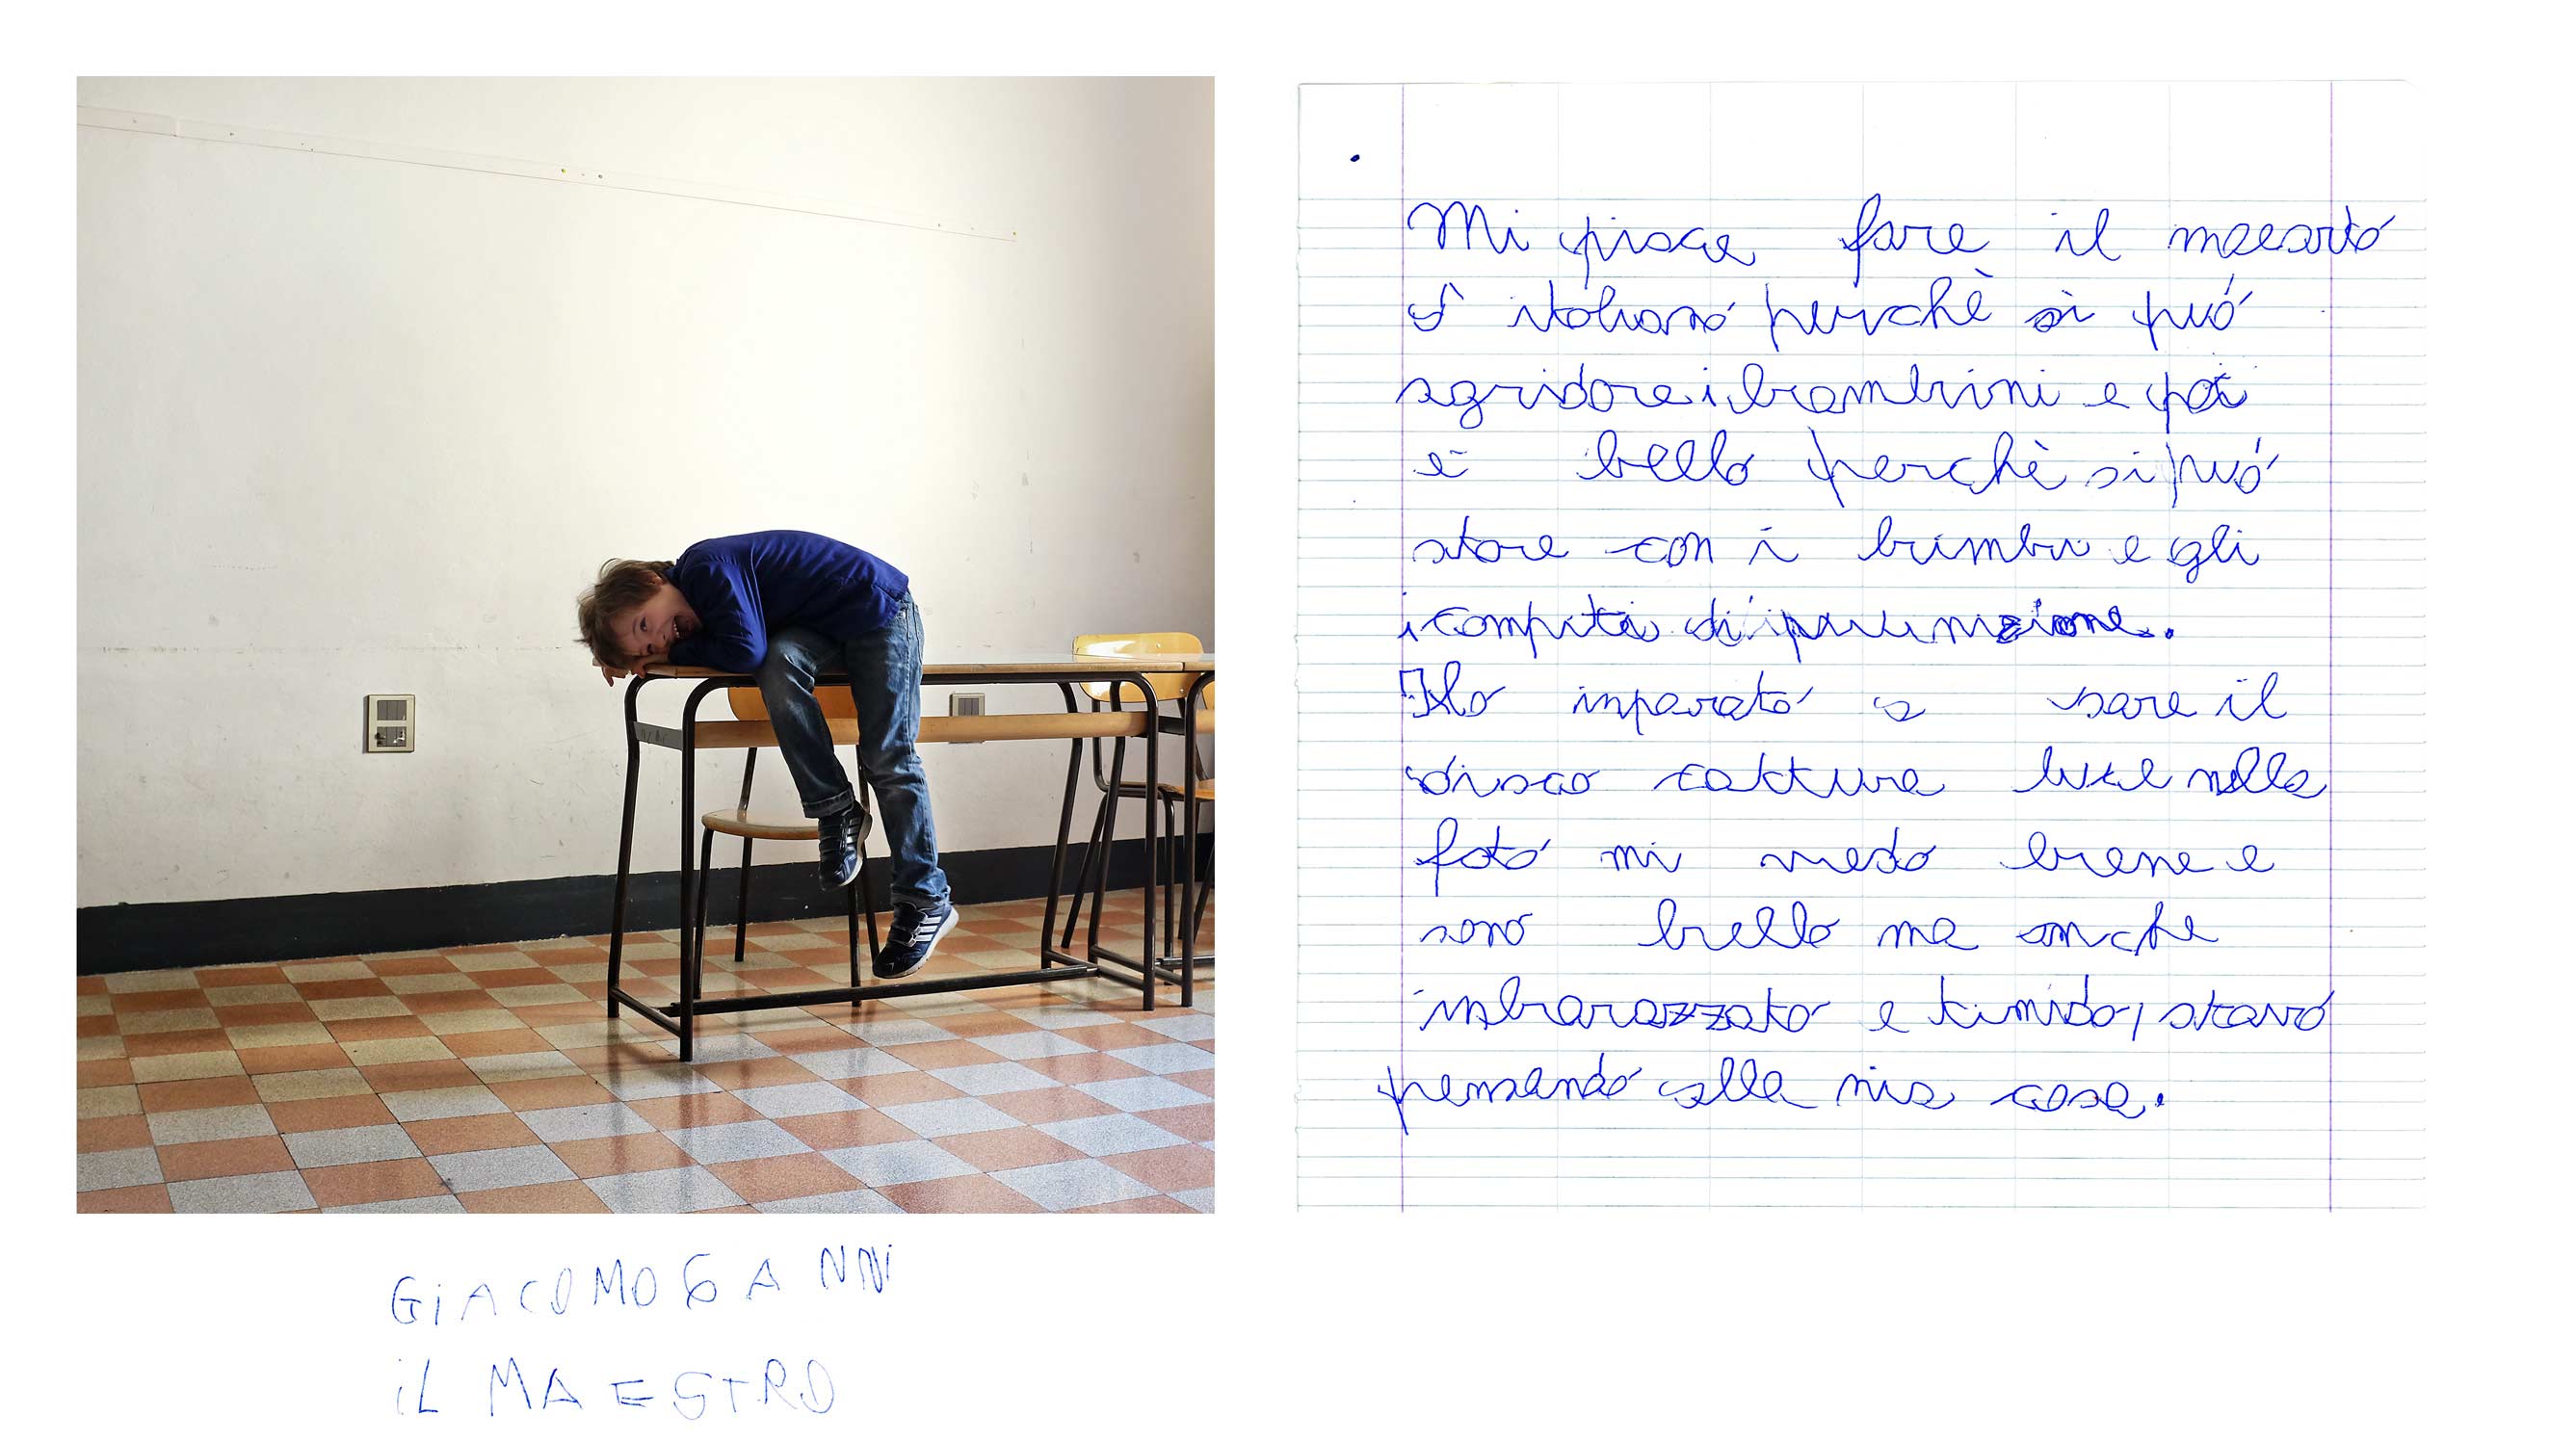 Mi piace fare il maearto
d'italiano perchè si può
sgridare i bambini e poi
è bello perchè si può
stare con i bimbi e gli
i compiti di punizione.
Ho inparato a sare il
disco cattura luce nella
foto mi vedo bene e
sono bello ma anche
inbarazzato e timido, stavo
pensando alla mia casa.
GiACOMO 6 ANNi
iL MAESTRO